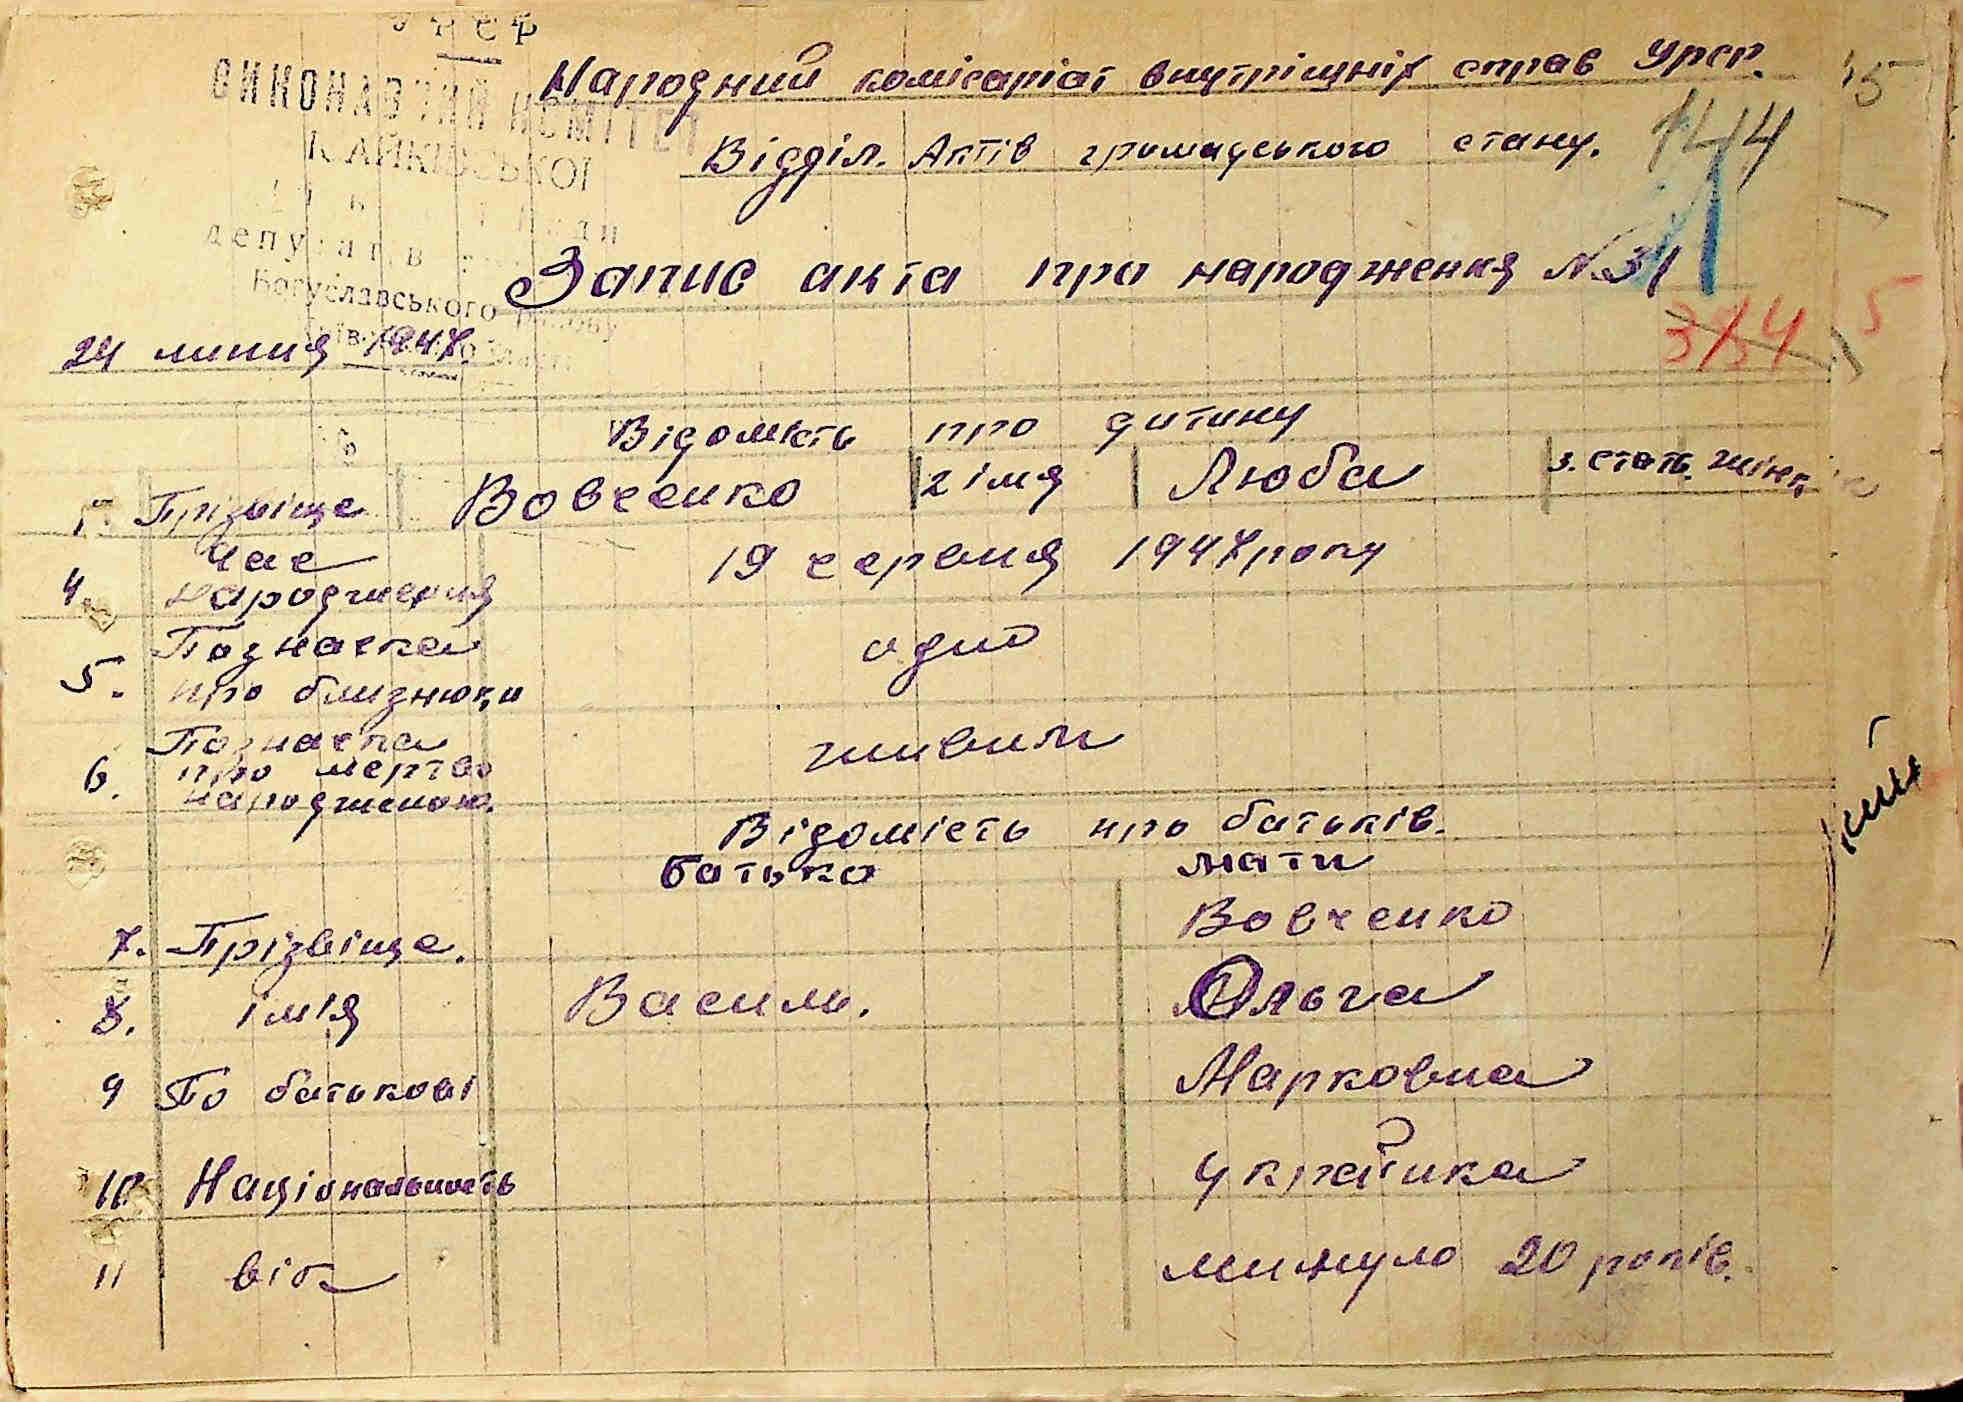 УРСР
ВИКОНАВЧИЙ КОМІТЕТ
депутатів
Богуславського району
Народний комісаріат внутрішніх справ Урср.
Відділ. Актів громадського стану.
15
144
Запис акта про народження № 31
5
24 липня 1947.
Відомість про дитину
1. Прізвіще Вовченко 2 імя Люба 3. стать. жіноч
4. Час народження 19 червня 1947 року
5. Позначка про близнюки одно
6. Позначка про мертво народженого. живим
Відомість про батьків.
батько мати
7. Прізвіще. Вовченко
8. імія Василь. Ольга
9 По батькові Марковна
10 Національность Українка
11 вік минуло 20 років.